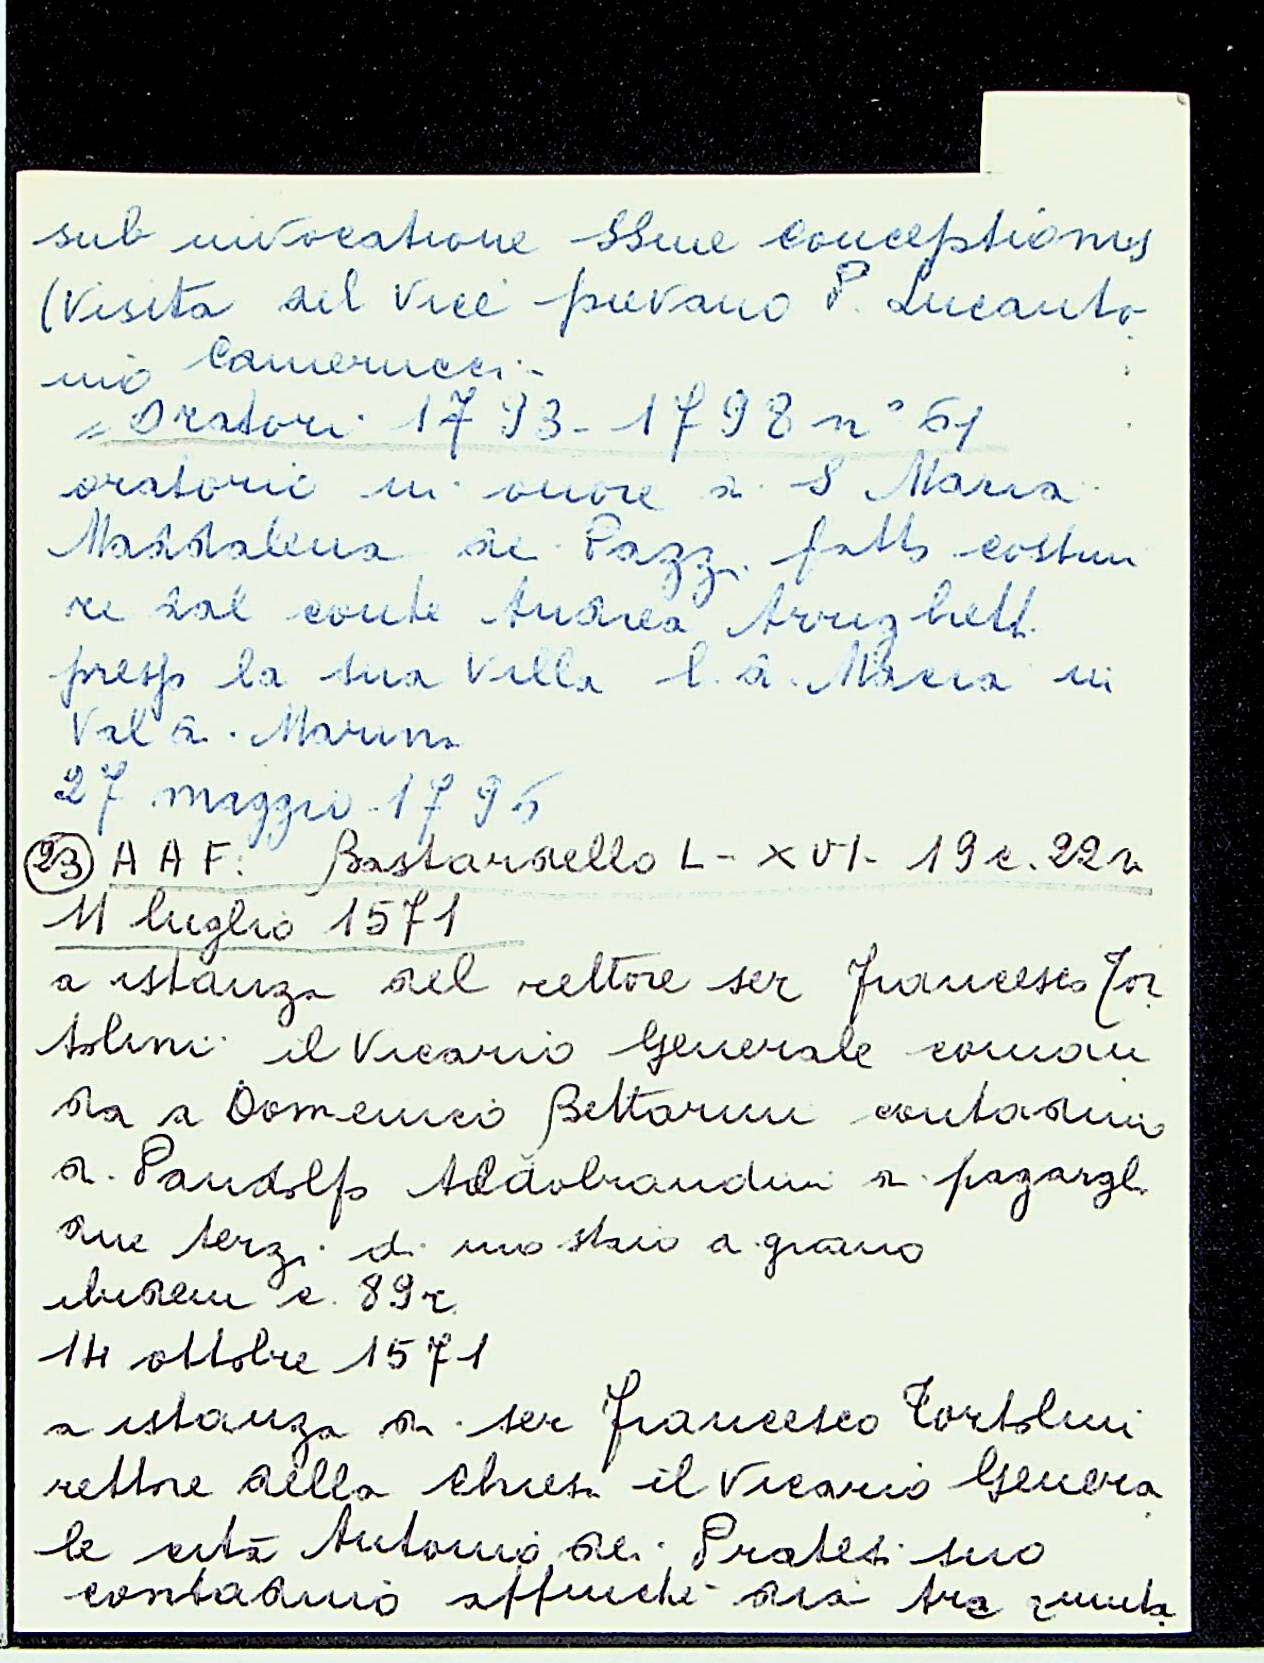 sub invocatione SSme conceptionis
(Visita del Vice pievano P. Lucanto
nio Camerucci -
= Oratori 1793 - 1798 n° 51
oratorio in onore di S Maria
Maddalena de Pazzi fatto costrui
re dal conte Andrea Arrighetti
presso la sua Villa l. d. Macia in
Val di Marina
27 maggio 1795
(23) A A F: Bastardello L - XVI - 19 c. 22r
11 luglio 1571
a istanza del rettore ser Francesco Tor
tolini il Vicario Generale coman
da a Domenico Bettarini contadino
di Pandolfo Aldobrandini di pagargli
due terzi di uno staio a grano
ibidem c. 89r
14 ottobre 1571
a istanza di ser Francesco Tortolini
rettore della chiesa il Vicario Genera
le cita Antonio dei Pratesi suo
contadino affinché dia tra